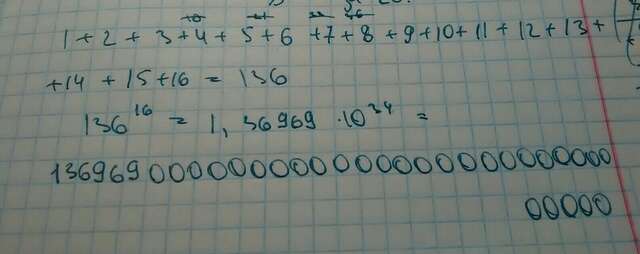 1 + 2 + 3 + 4 + 5 + 6 + 7 + 8 + 9 + 10 + 11 + 12 + 13 +
+14 + 15 + 16 = 136
136¹⁶ = 1,36969 · 10³⁴ =
136969000000000000000000000000
00000